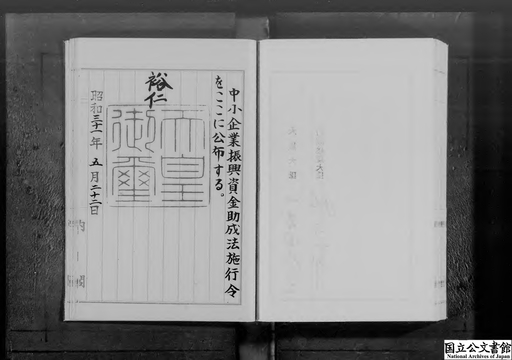 中小企業振興資金助成法施行令
を、ここに公布する。
裕仁
天皇
御璽
昭和三十一年五月二十二日
内閣
国立公文書館
National Archives of Japan